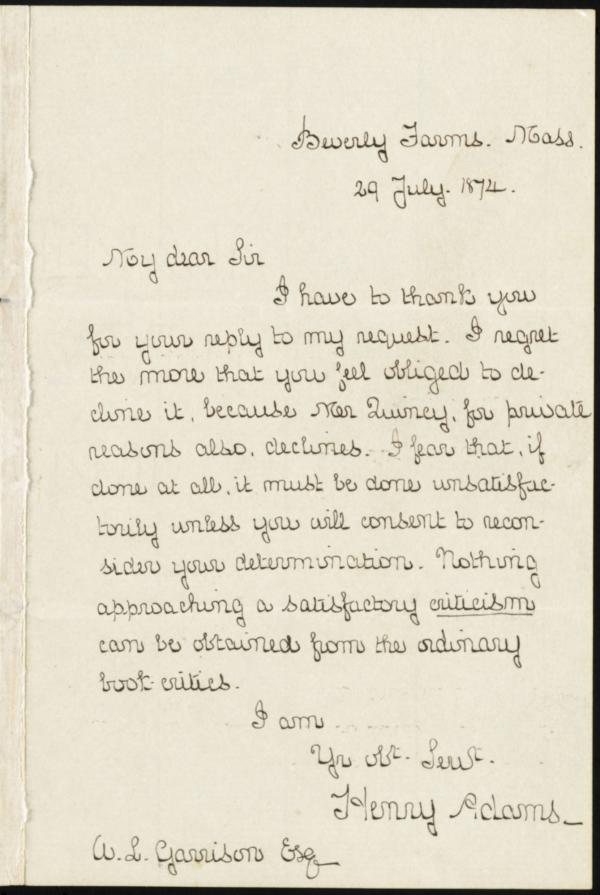 Beverly Farms. Mass.
29 July. 1874.
My dear Sir
I have to thank you
for your reply to my request. I regret
the more that you feel obliged to de-
cline it, because Mr Quincy, for private
reasons also, declines. I fear that, if
done at all, it must be done unsatisfac-
torily unless you will consent to recon-
sider your determination. Nothing
approaching a satisfactory criticism
can be obtained from the ordinary
book-critics.
I am
Yr obt. Servt.
Henry Adams_
W. L. Garrison Esq